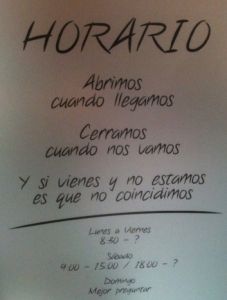 HORARIO
Abrimos
cuando llegamos
Cerramos
cuando nos vamos
Y si vienes y no estamos
es que no coincidimos
Lunes a Viernes
8:30 - ?
Sábado
9:00 - 15:00 / 18:00 - ?
Domingo
Mejor preguntar